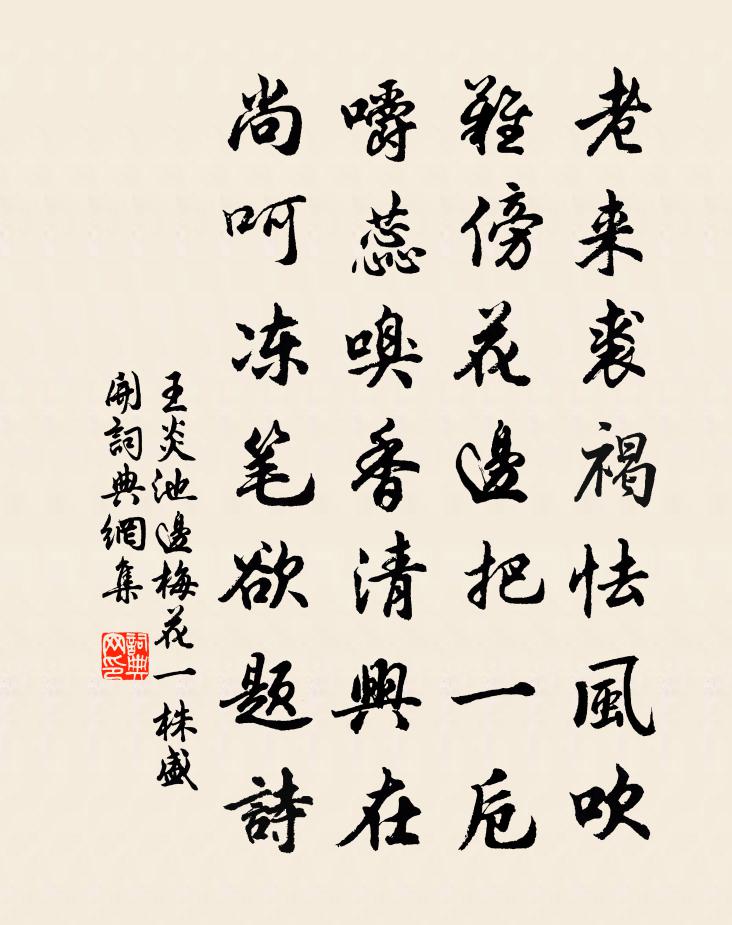 老来裘褐怯風吹
難傍花邊把一卮
嚼蕊嗅香清興在
尚呵冻笔欲题詩
王炎池邊梅花一株盛
開詞典網集
詞典
网印